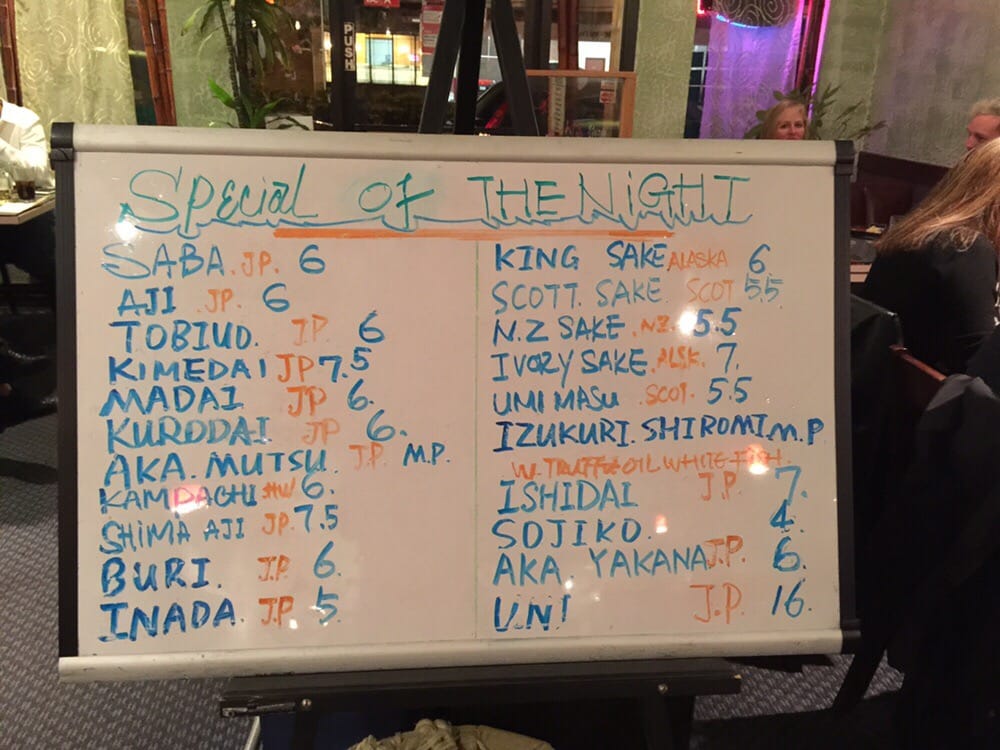 PUSH
SPECIAL OF THE NIGHT
SABA. JP. 6
AJI JP. 6
TOBIUO. J.P. 6
KIMEDAI JP 7.5
MADAI JP 6.
KURODAI JP 6.
AKA. MUTSU. J.P. M.P.
KAMPACHI HW 6.
SHIMA AJI JP. 7.5
BURI. J.P. 6.
INADA. J.P. 5.
KING SAKE ALASKA 6.
SCOTT. SAKE. SCOT 5.5
N.Z SAKE. N.Z. 5.5
IVORY SAKE. ALSK. 7.
UMI MASU. SCOT. 5.5
IZUKURI. SHIROMI. M.P
W. TRUFFUOIL WHITE FISH.
ISHIDAI J.P. 7.
SOJIKO. 4.
AKA. YAKANA J.P. 6.
UNI J.P 16.